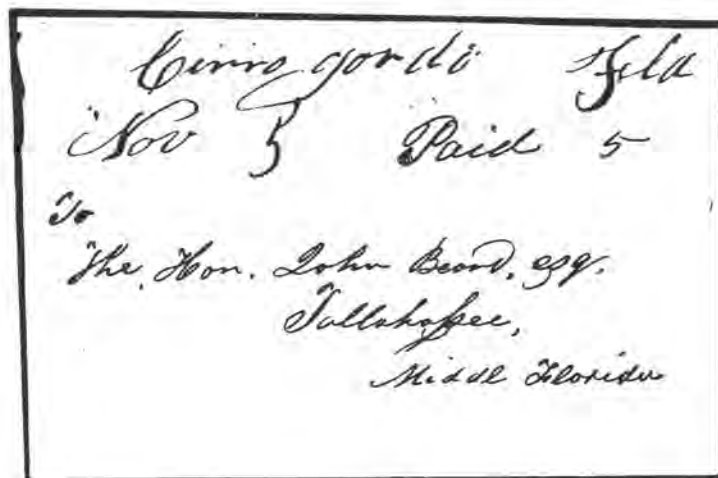 Cirro gordo Fla
Nov 5 Paid 5
To
The Hon. John Beard, esq.
Tallahassee,
Middl Florida